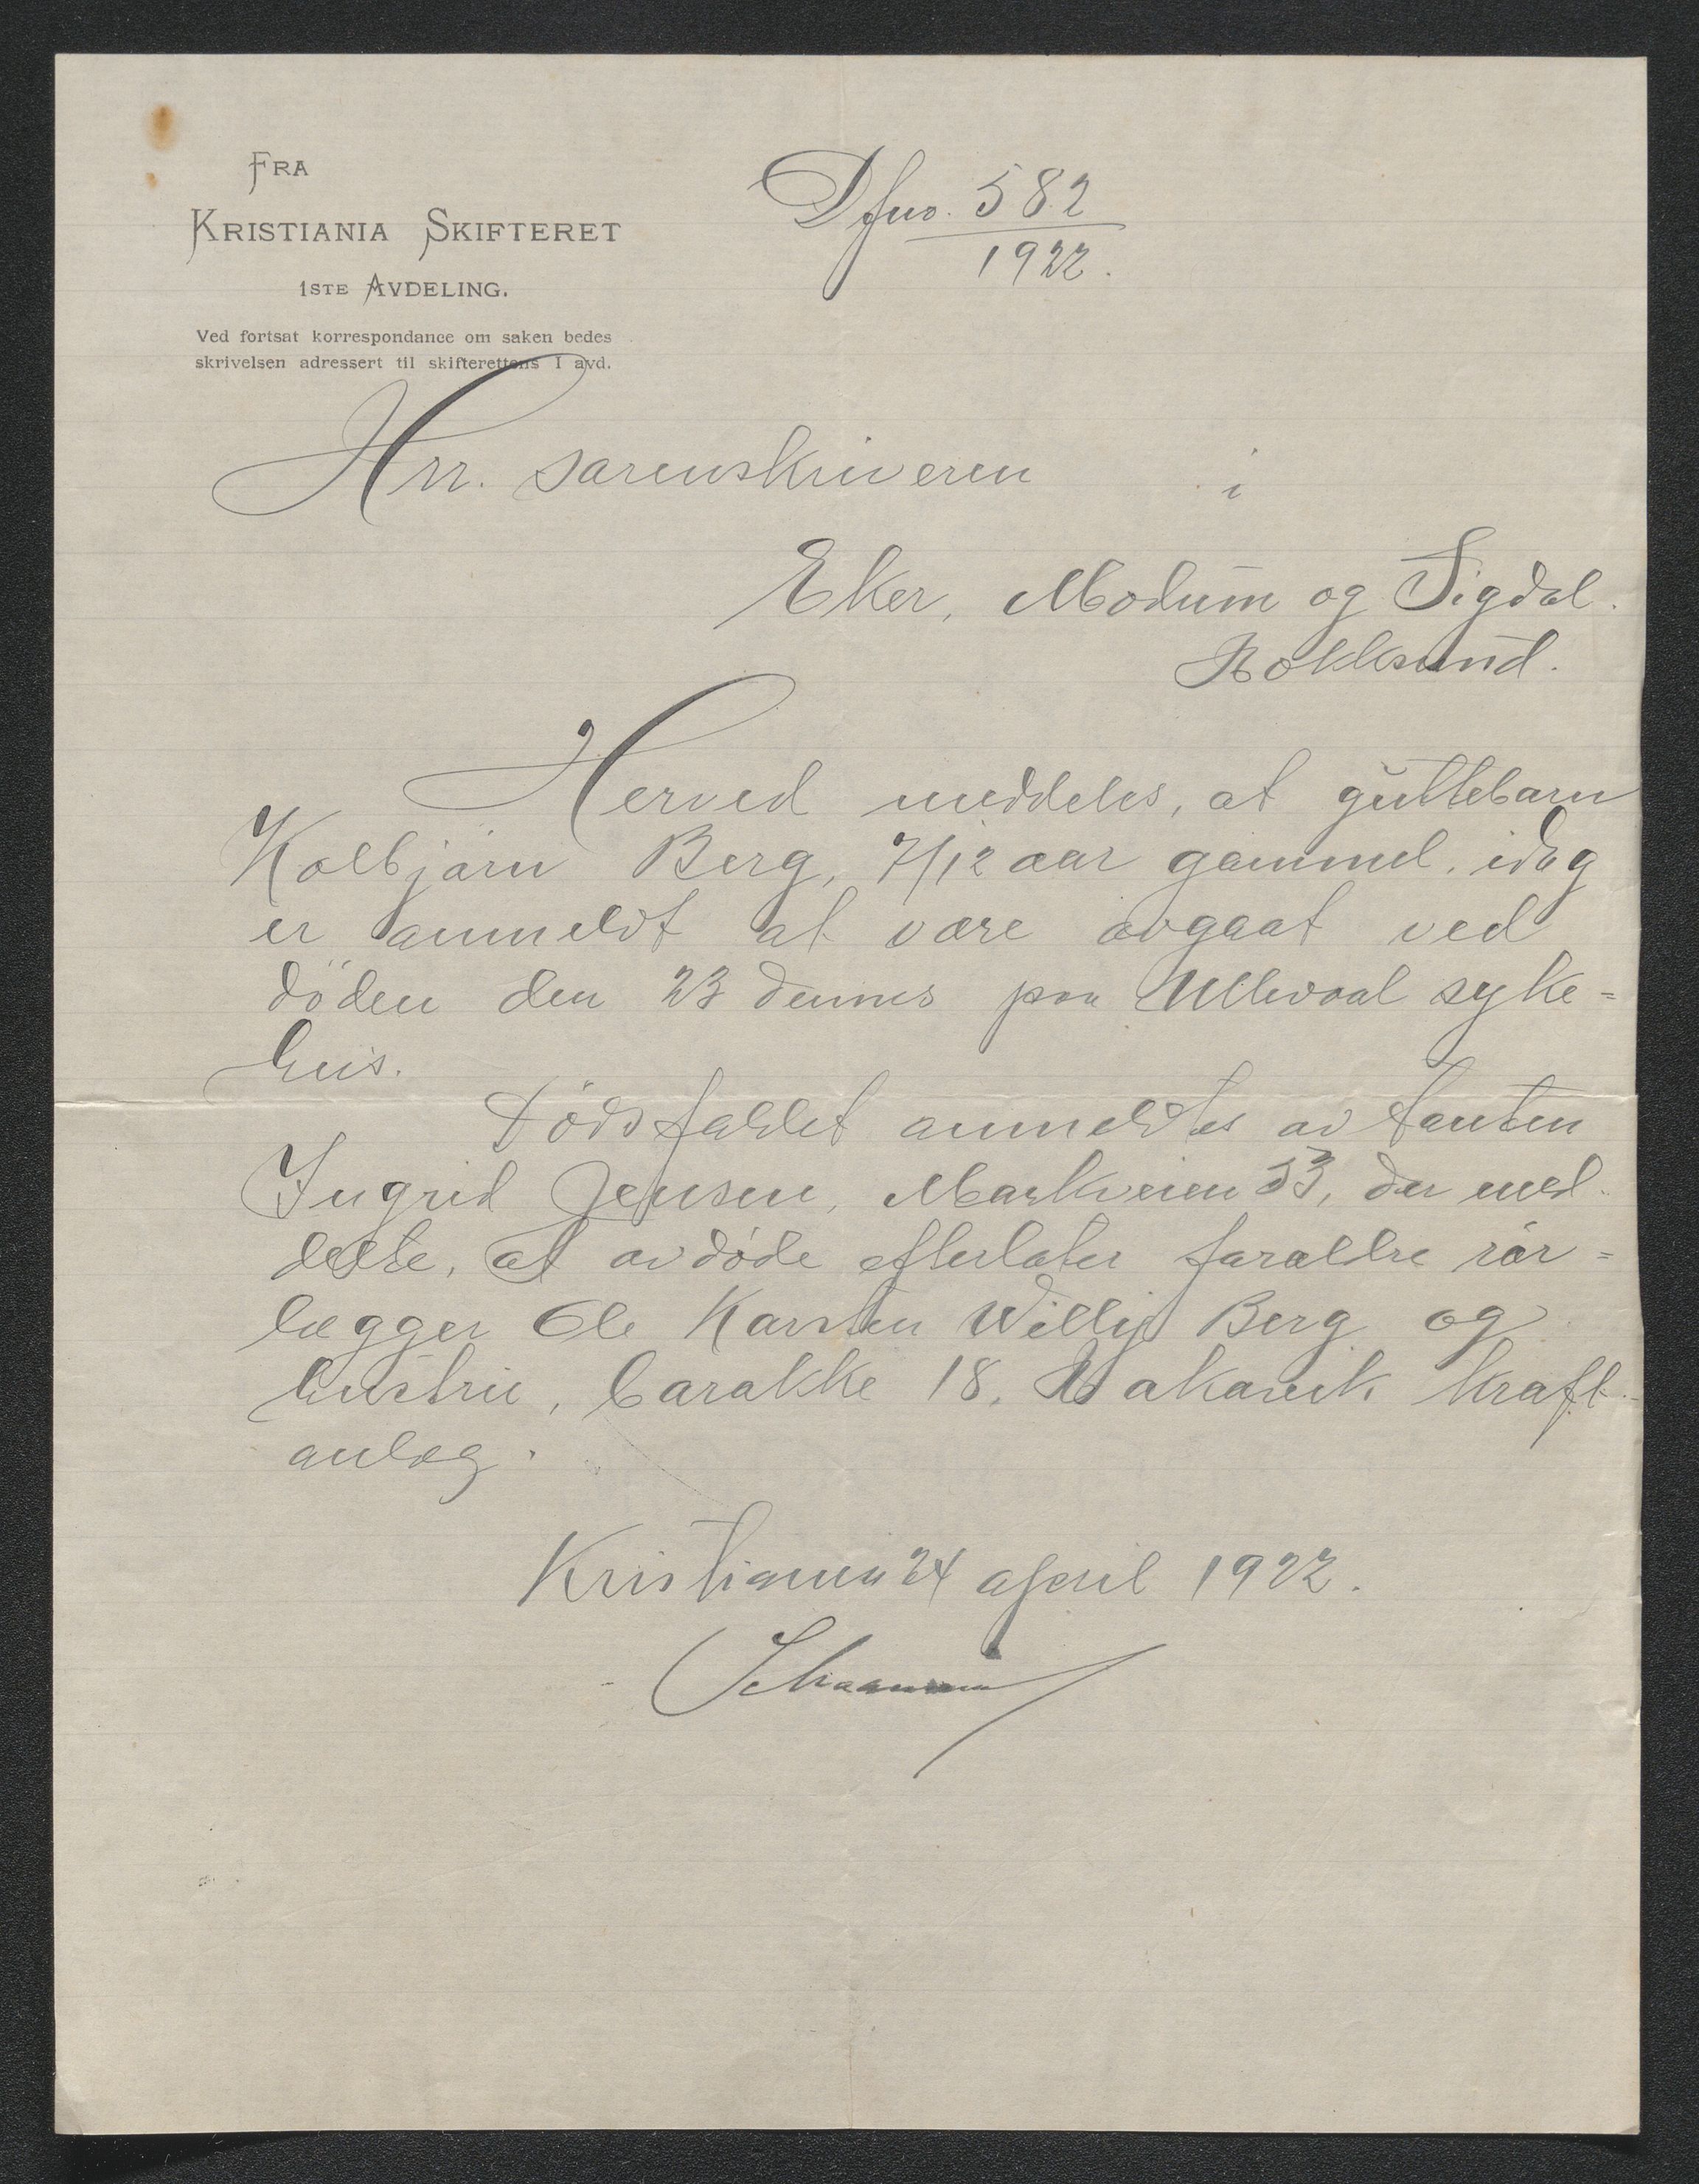 FRA
KRISTIANIA SKIFTERET
1STE AVDELING.
Ved fortsat korrespondance om saken bedes
skrivelsen adressert til skifterettens I avd.
Dfno. 582
1922.
Hrr. sorenskriveren i
Eker, Modum og Sigdal.
Hokksund.
Herved meddeles, at guttebarn
Kolbjørn Berg, 7/12 aar gammel, idag
er anmeldt at være avgaat ved
døden den 23 dennes paa Ullevaal syke=
hus.
Dødsfaldet anmeldtes av tanten
Ingrid Jensen, Markveien 53, der med
delte, at avdøde efterlater forældre rør=
lægger Ole Karsten Willy Berg og
hustru, barakke 18, Hakavik kraft-
anlæg.
Kristiania 24 april 1922.